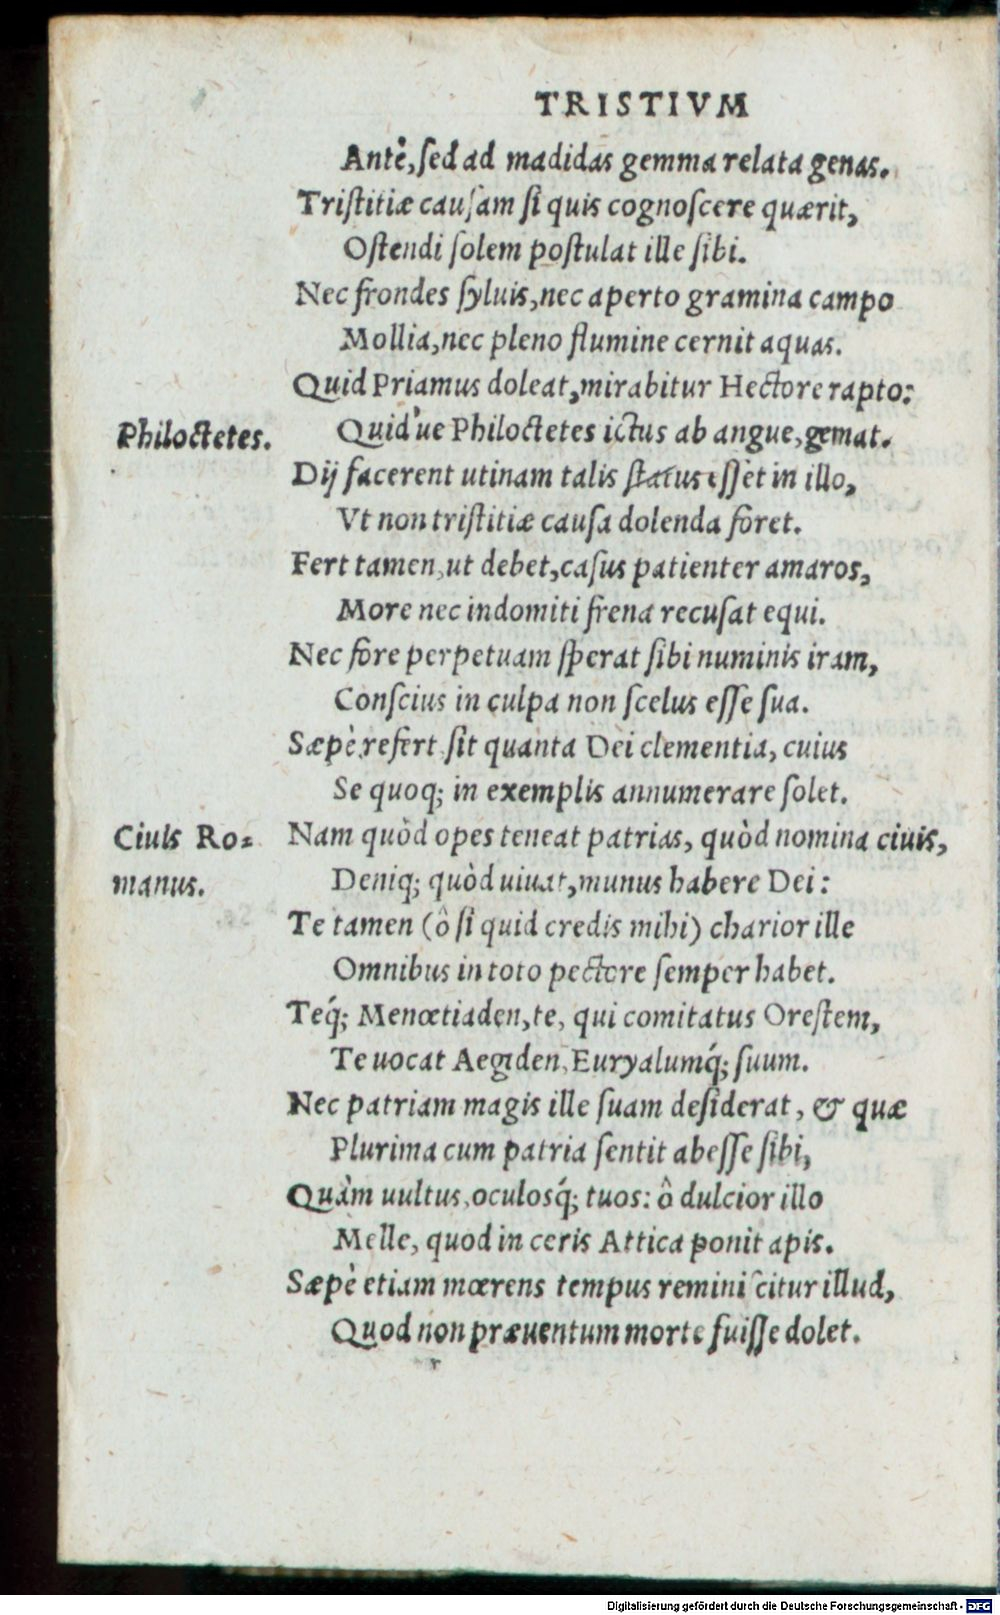 TRISTIVM
Antè, ſed ad madidas gemma relata genas.
Triſtitiæ cauſam ſi quis cognoſcere quærit,
Oſtendi ſolem poſtulat ille ſibi.
Nec frondes ſyluis, nec aperto gramina campo
Mollia, nec pleno flumine cernit aquas.
Quid Priamus doleat, mirabitur Hectore rapto:
Philoctetes. Quid'ue Philoctetes ictus ab angue, gemat.
Dij facerent utinam talis ſtatus eſſet in illo,
Vt non triſtitiæ cauſa dolenda foret.
Fert tamen, ut debet, caſus patienter amaros,
More nec indomiti frena recuſat equi.
Nec fore perpetuam ſperat ſibi numinis iram,
Conſcius in culpa non ſcelus eſſe ſua.
Sæpè refert ſit quanta Dei clementia, cuius
Se quoq; in exemplis annumerare ſolet.
Ciuis Ro= Nam quòd opes teneat patrias, quòd nomina ciuis,
manus. Deniq; quòd uiuat, munus habere Dei:
Te tamen (ô ſi quid credis mihi) charior ille
Omnibus in toto pectore ſemper habet.
Teq́; Menœtiaden, te, qui comitatus Oreſtem,
Te uocat Aegiden, Euryalumq́; ſuum.
Nec patriam magis ille ſuam deſiderat, & quæ
Plurima cum patria ſentit abeſſe ſibi,
Quàm uultus, oculosq́; tuos: ô dulcior illo
Melle, quod in ceris Attica ponit apis.
Sæpè etiam mœrens tempus reminiſcitur illud,
Quod non præuentum morte fuiſſe dolet.
Digitalisierung gefördert durch die Deutsche Forschungsgemeinschaft - DFG